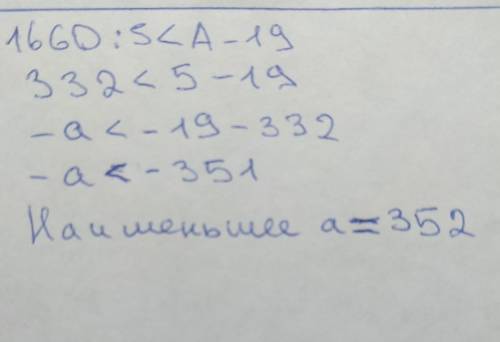 1660:5<A-19
332<5-19
-a<-19-332
-a<-351
Наименьшее a=352